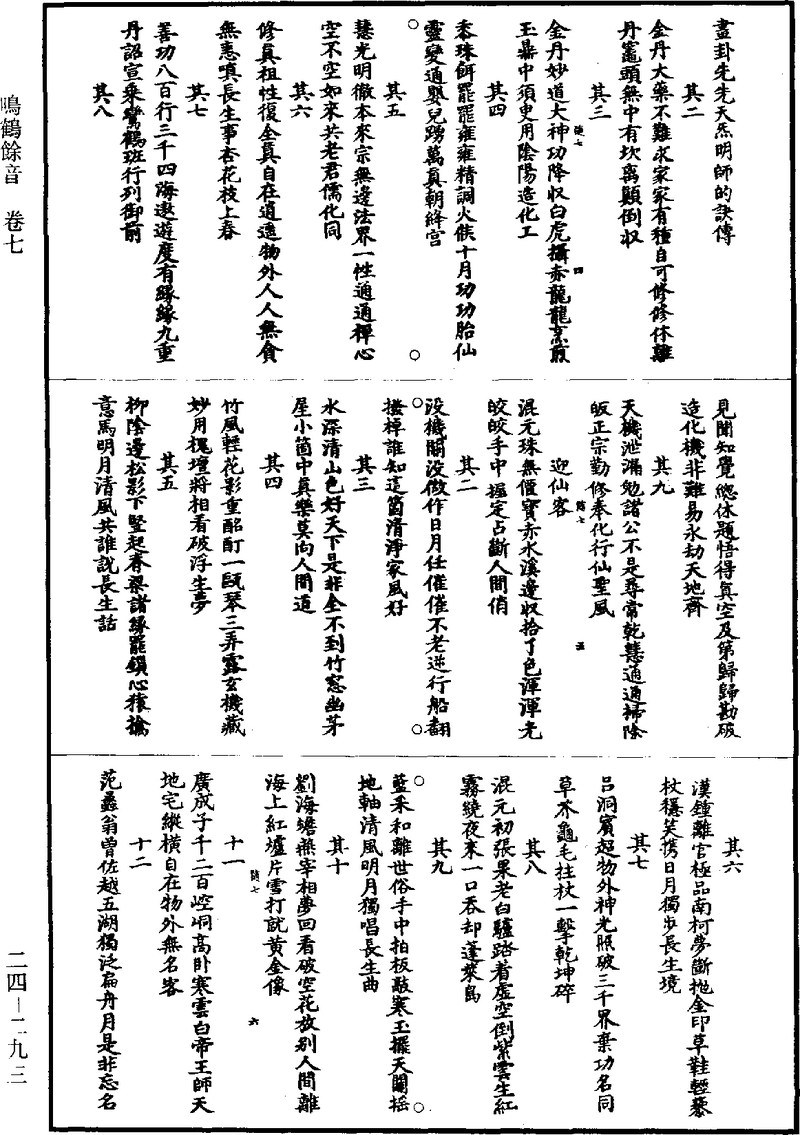 鳴鶴餘音　卷七
二四－二九三
畫卦先先天炁明師的訣傳
其二
金丹大藥不難求家家有種自可修修休離
丹竈頭無中有坎离顛倒収
其三
金丹妙道大神功降収白虎攝赤龍龍烹煎
玉鼎中須臾用陰陽造化工
其四
黍珠餌罷罷雍雍精調火候十月功功胎仙
靈變通嬰兒踴萬真朝絳宮
其五
慧光明徹本來宗無邊法界一性通通禪心
空不空如來共老君儒化同
其六
修真祖性復全真自在逍遙物外人人無貪
無恚嗔長生事杏花枝上春
其七
善功八百行三千四海遨遊度有緣緣九重
丹詔宣乘鸞鶴班行列御前
其八
見聞知覺總休題悟得真空及第歸歸勘破
造化機非難易永劫天地齊
其九
天機泄漏勉諸公不是尋常乾慧通通掃除
皈正宗勤修奉化行仙聖風
迎仙客
混元珠無價寶赤水溪邊収拾了色渾渾光
皎皎手中握定占斷人間俏
其二
没機關没做作日月任催催不老逆行船翻
接棹誰知這箇清淨家風好
其三
水深清山色好天下是非全不到竹窓幽茅
屋小箇中真樂莫向人間道
其四
竹風輕花影重酩酊一甌琴三弄露玄機藏
妙用槐壇將相看破浮生夢
其五
柳陰邊松影下竪起脊梁諸緣罷鎖心猿擒
意馬明月清風共誰說長生話
其六
漢鍾離官極品南柯夢斷抛金印草鞋輕藜
杖穩笑携日月獨步長生境
其七
呂洞賓超物外神光照破三千界棄功名同
草芥龜毛拄杖一擊乾坤碎
其八
混元初張果老白驢踏着虛空倒紫雲生紅
霧繞夜來一口吞却蓬萊島
其九
藍采和離世俗手中拍板敲寒玉擺天關搖
地軸清風明月獨唱長生曲
其十
劉海蟾燕宰相夢回看破空花放别人間離
海上紅爐片雪打就黃金像
十一
廣成子千二百崆峒高卧寒雲白帝王師天
地宅縱橫自在物外無名客
十二
范蠡翁曾佐越五湖獨泛扁舟月是非忘名